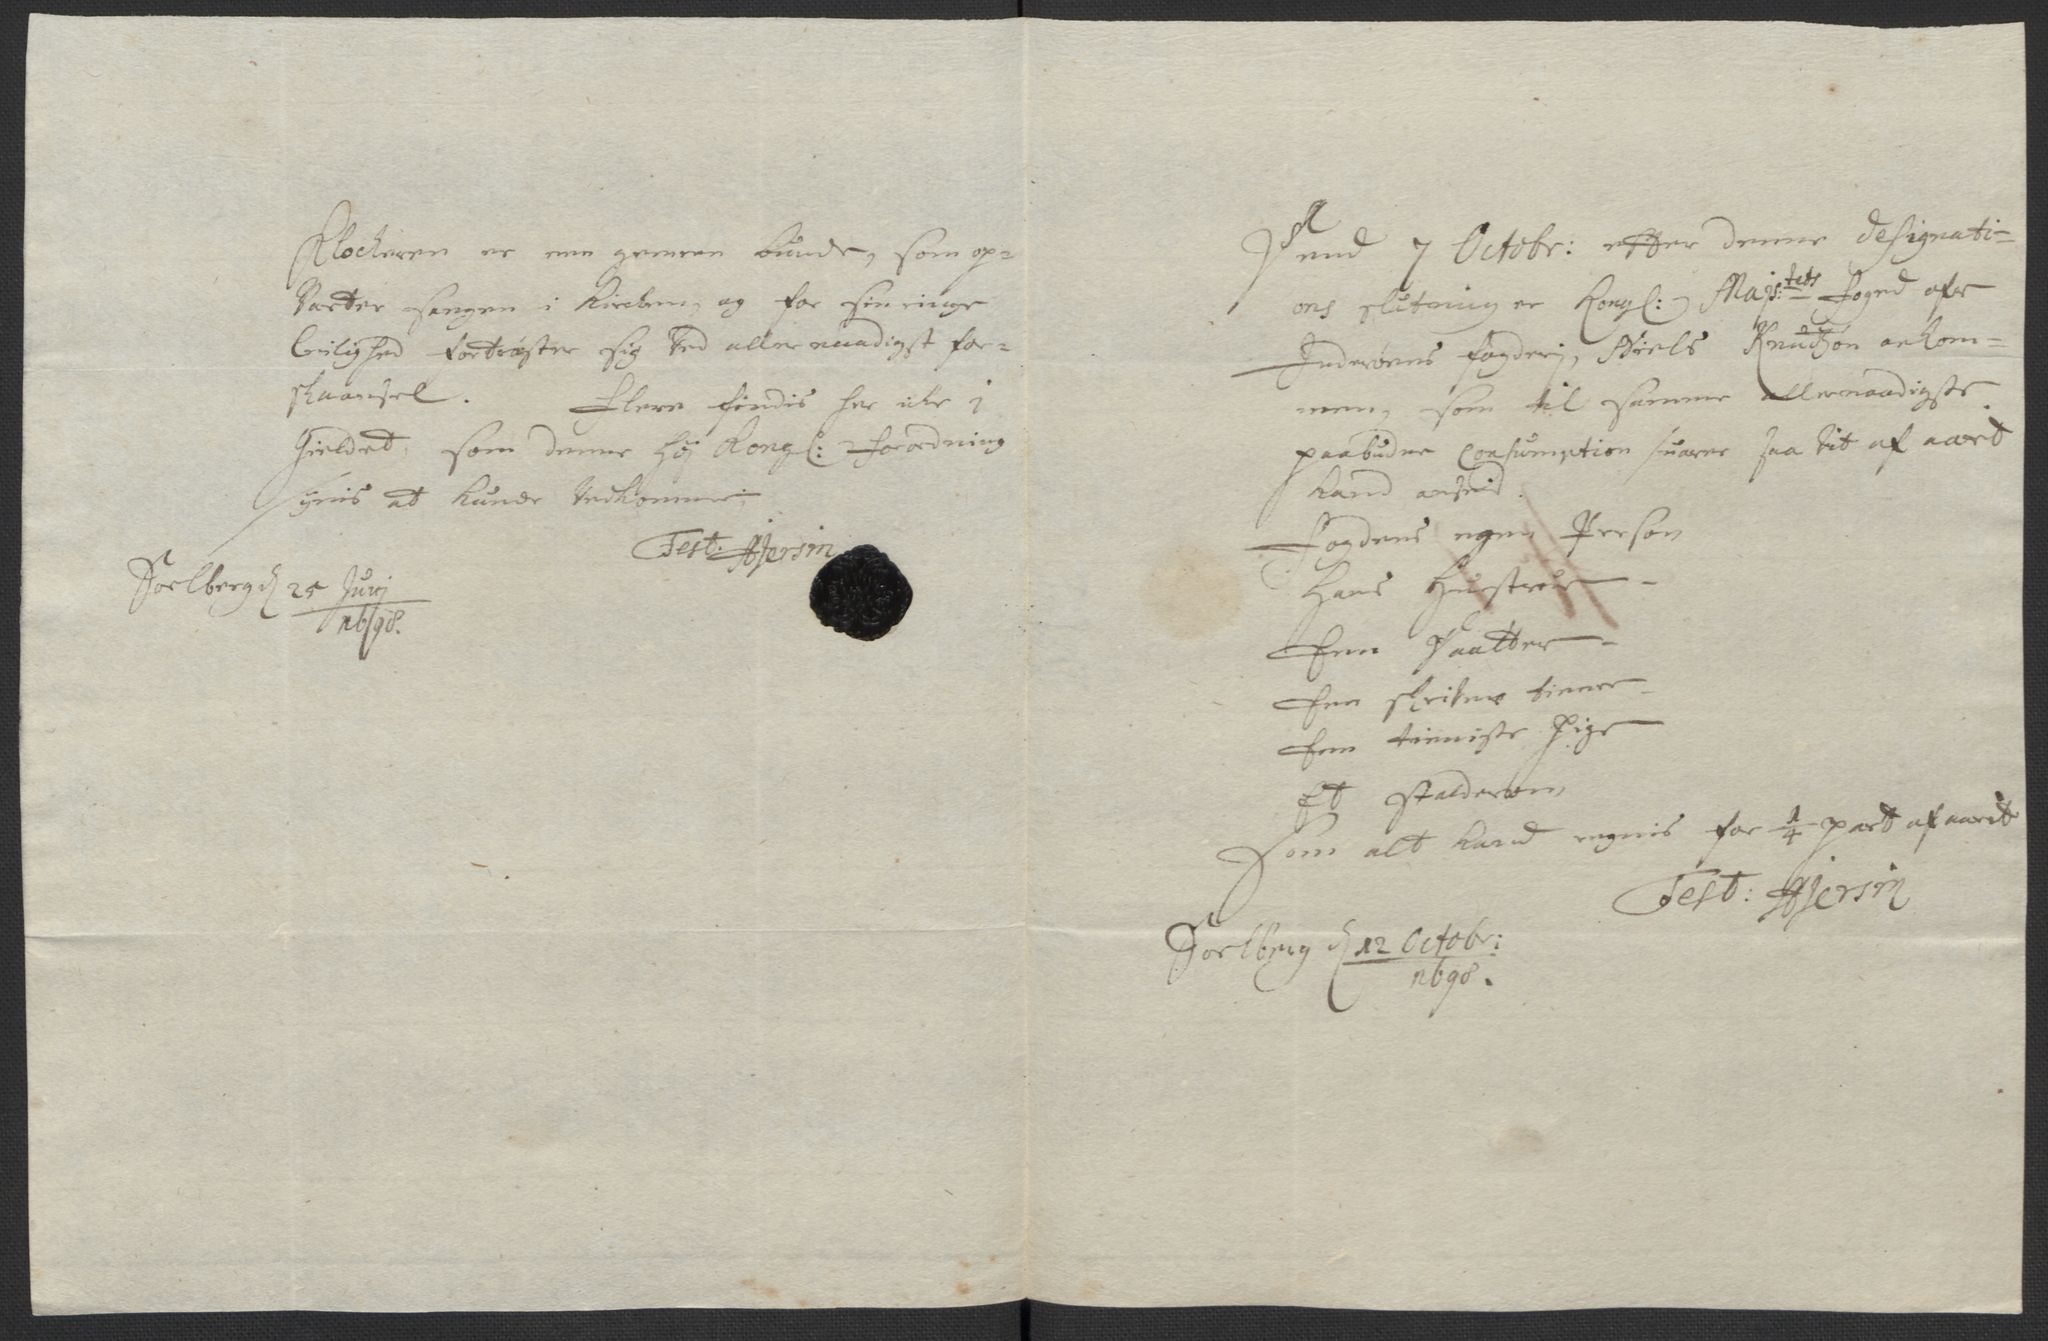 Klocheren er een gemeen bunde, som op-
varter sangen i Kirchen, og for sin ringe
Leilighed fortrøster sig ved allernaadigst for-
skaansel. Flere findis her iche i
Gieldet, som denne høj Kongl: forordning
siunis at kunde vedkomme
Test: AJersin
Soelberg d 25 Junj
1698.
Siden 7 Octobr: effter denne designati-
ons slutning er Kongl: Majs:tets Foged ofr
Inderøens fogderj, Niels Knudzøn ankom-
men, som til samme allernaadigste
paabudne Consumption suarer saa vit af aaret
kand ansees.
Fogdens egen Person
Hans Hustrue
Een Daatter
Een skriver tiener
Een tieniste Pige
Et stalderom
Som alt kand regnis for 1/4 part af aaret
Test: AJersin
Soelberg d 12 Octobr:
1698.